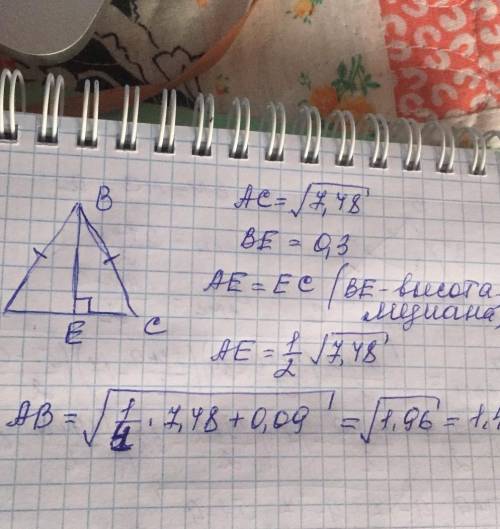 B
E
C
AC = √7,48
BE = 0,3
AE = EC (BE - высота
медиана
AE = 1/2 √7,48
AB = √(1/4 · 7,48 + 0,09) = √1,96 = 1,